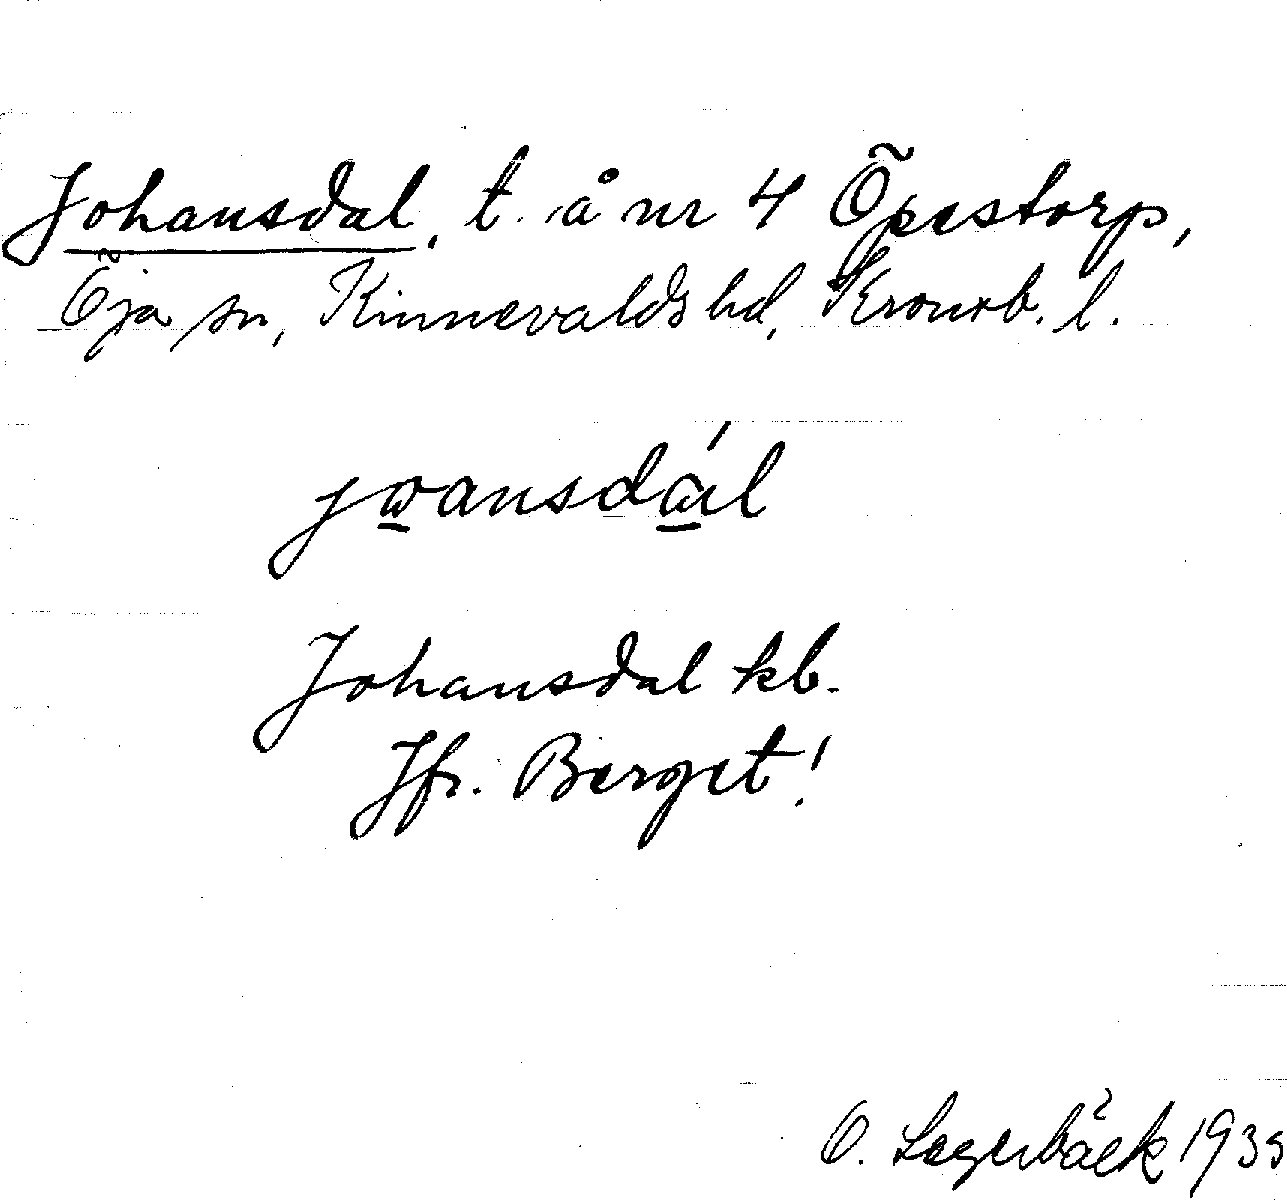 Johansdal, t. å nr 4 Öpestorp,
Öja sn, Kinnevalds hd, Kronob. l.
jωansdál
Johansdal kb.
Jfr. Berget!
O. Lagerbäck 1935